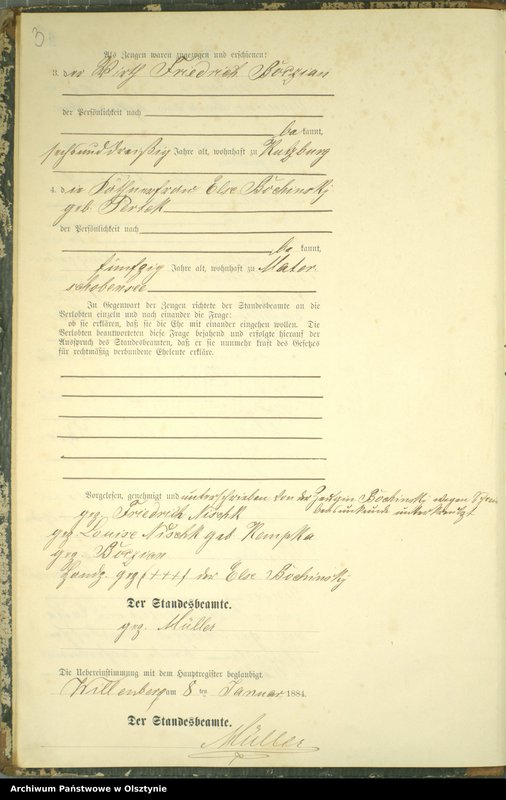 3
Als Zeugen waren zugezogen und erschienen:
3. der Wirth Friedrich Böczian
der Persönlichkeit nach
be kannt,
sechsunddreißig Jahre alt, wohnhaft zu Kutzburg
4. die Käthnerfrau Else Böchinsky
geb. Pertek
der Persönlichkeit nach
be kannt,
fünfzig Jahre alt, wohnhaft zu Mater
schobensee
In Gegenwart der Zeugen richtete der Standesbeamte an die
Verlobten einzeln und nach einander die Frage:
ob sie erklären, daß sie die Ehe mit einander eingehen wollen. Die
Verlobten beantworteten diese Frage bejahend und erfolgte hierauf der
Ausspruch des Standesbeamten, daß er sie nunmehr kraft des Gesetzes
für rechtmäßig verbundene Eheleute erkläre.
Vorgelesen, genehmigt und unterschrieben von der Zeugin Böchinsky wegen
unterkreuzt
gez. Friedrich Nischk
gez. Louise Nischk geb. Kempka
gez. Böczian
Handz. gez (+++) der Else Böchinsky
Der Standesbeamte.
gez. Müller
Die Uebereinstimmung mit dem Hauptregister beglaubigt.
Willenberg am 8 ten Januar 1884.
Der Standesbeamte.
Müller
Archiwum Państwowe w Olsztynie